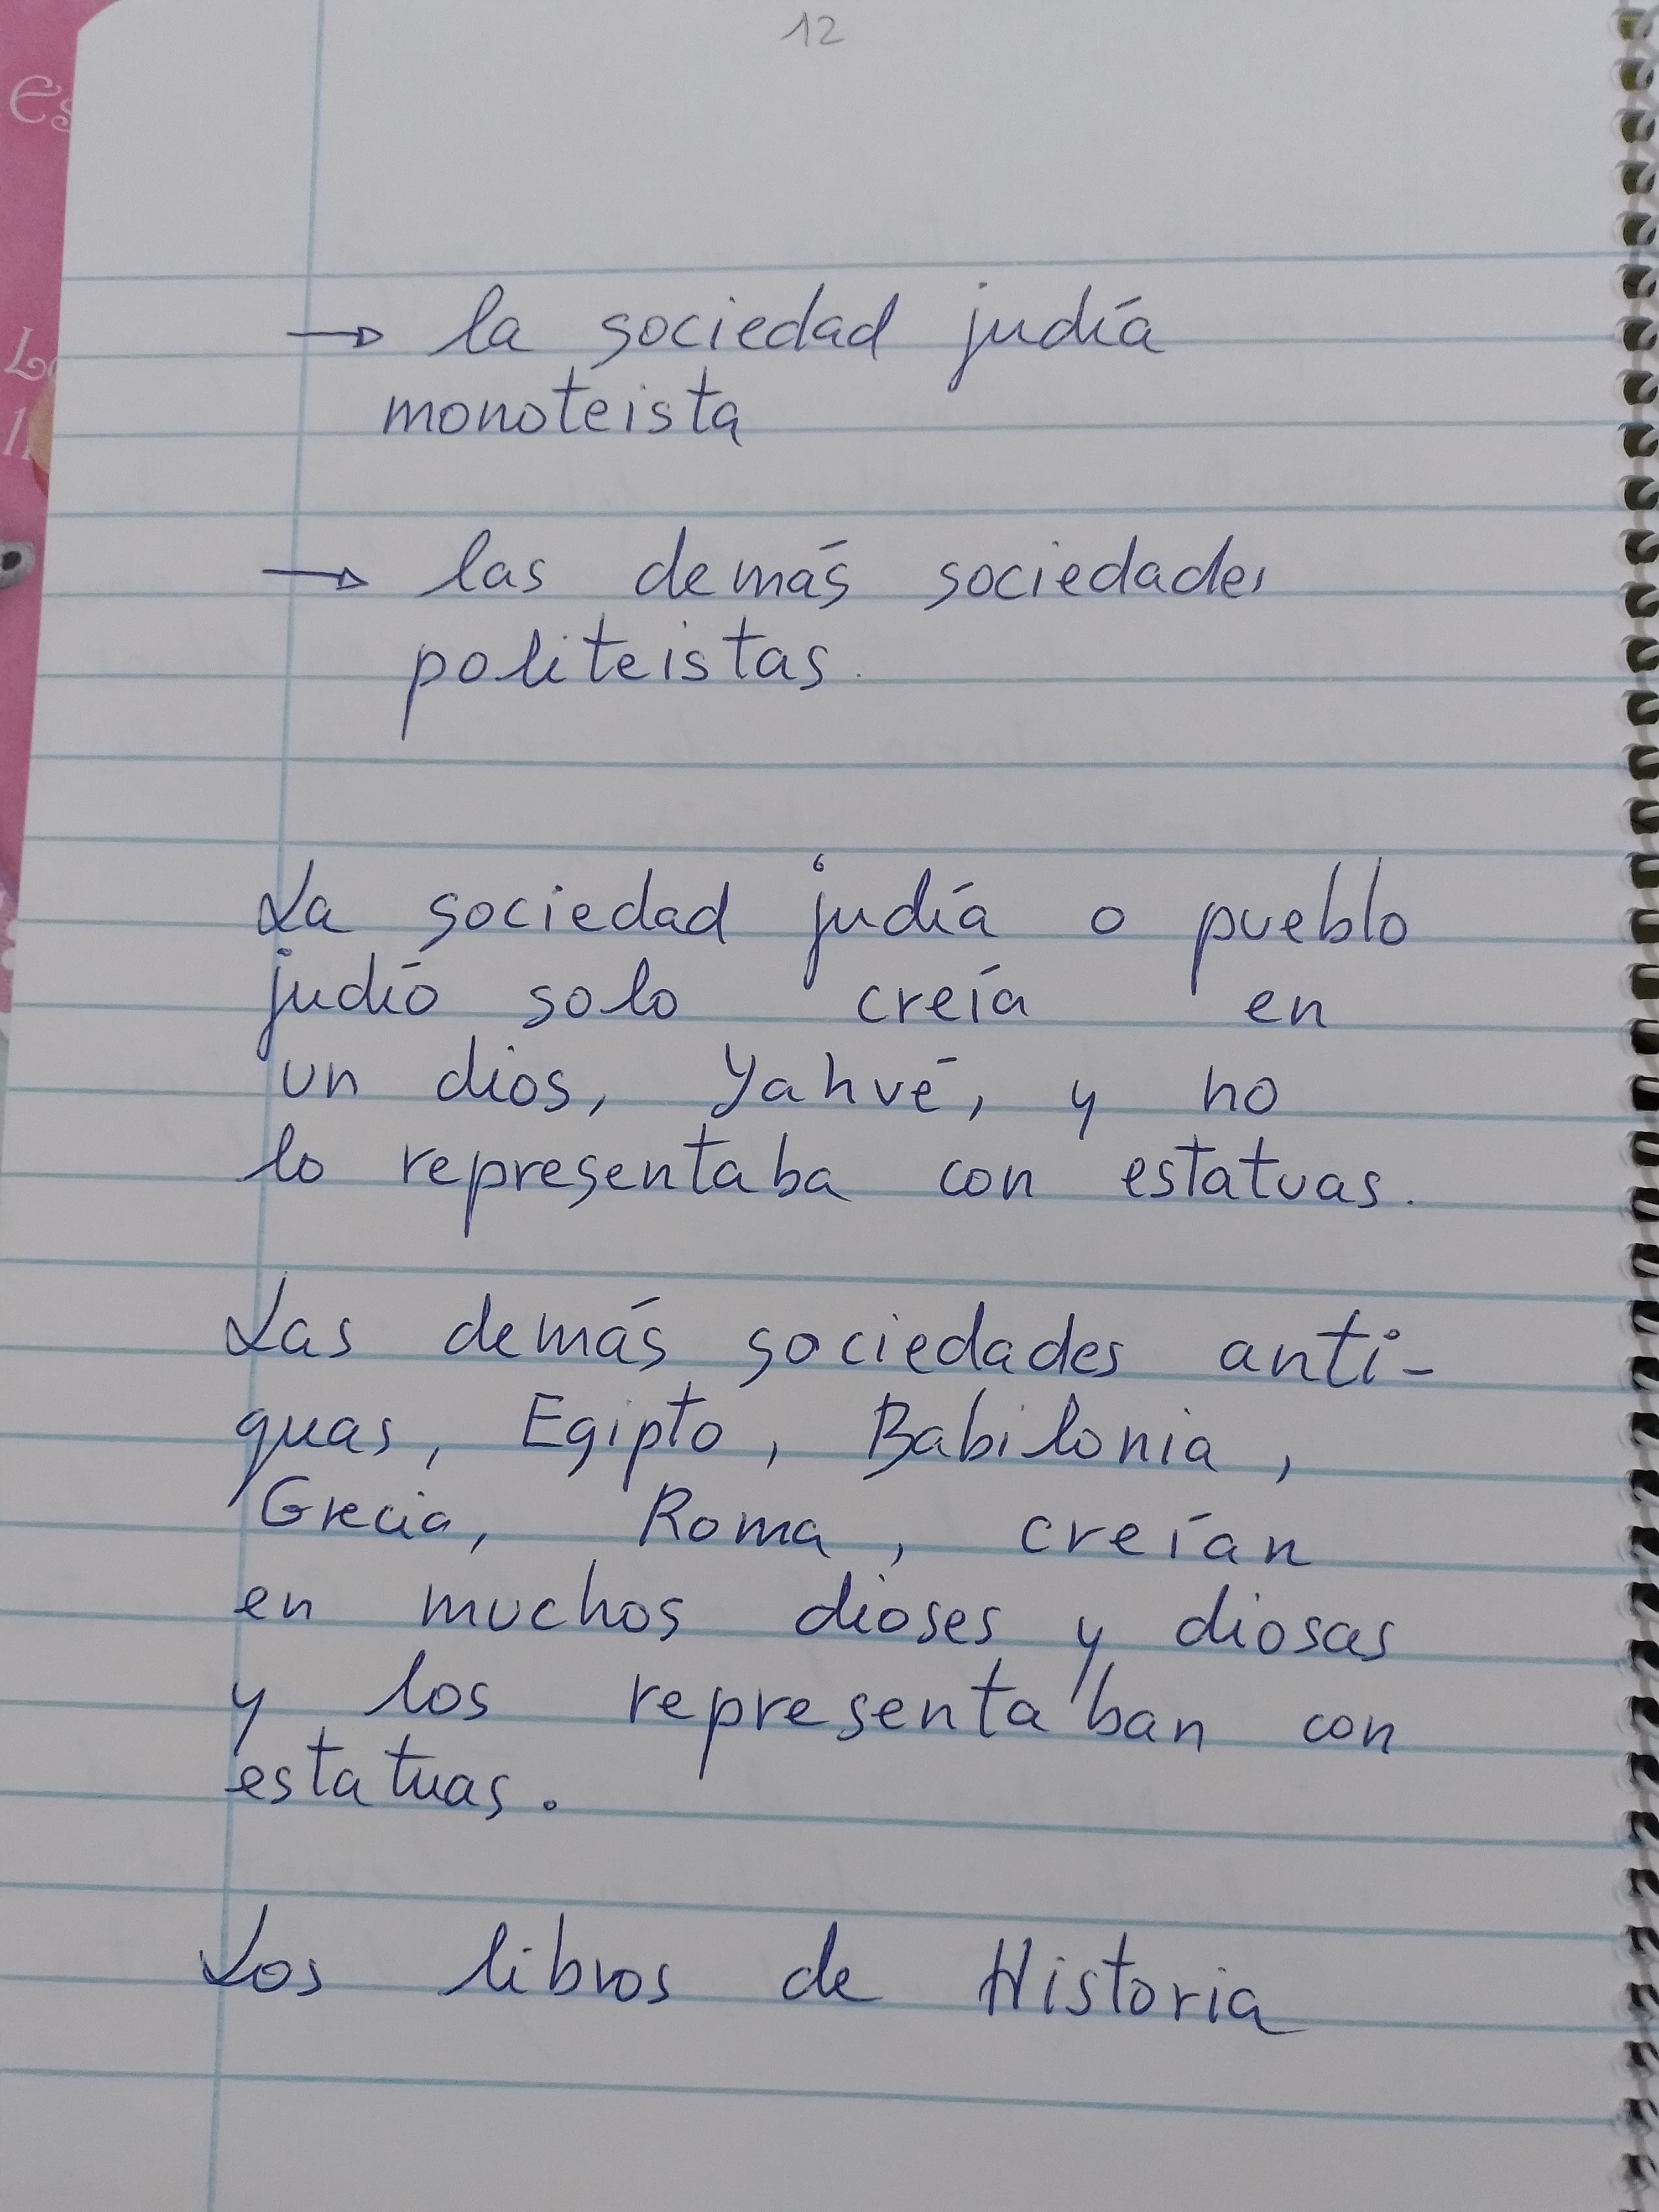 12
→ la sociedad judía
monoteista
→ las demás sociedades
politeistas.
La sociedad judía o pueblo
judío solo creía en
un dios, Yahvé, y no
lo representaba con estatuas.
Las demás sociedades anti-
guas, Egipto, Babilonia,
Grecia, Roma, creían
en muchos dioses y diosas
y los representaban con
estatuas.
Los libros de Historia